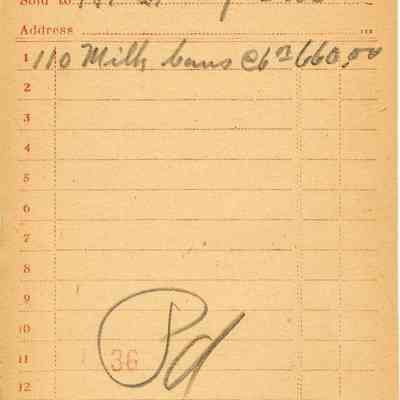 Sold to
Address
1 110 Milk cans @6.00 660.00
2
3
4
5
6
7
8
9
10
11 36
12
Pd